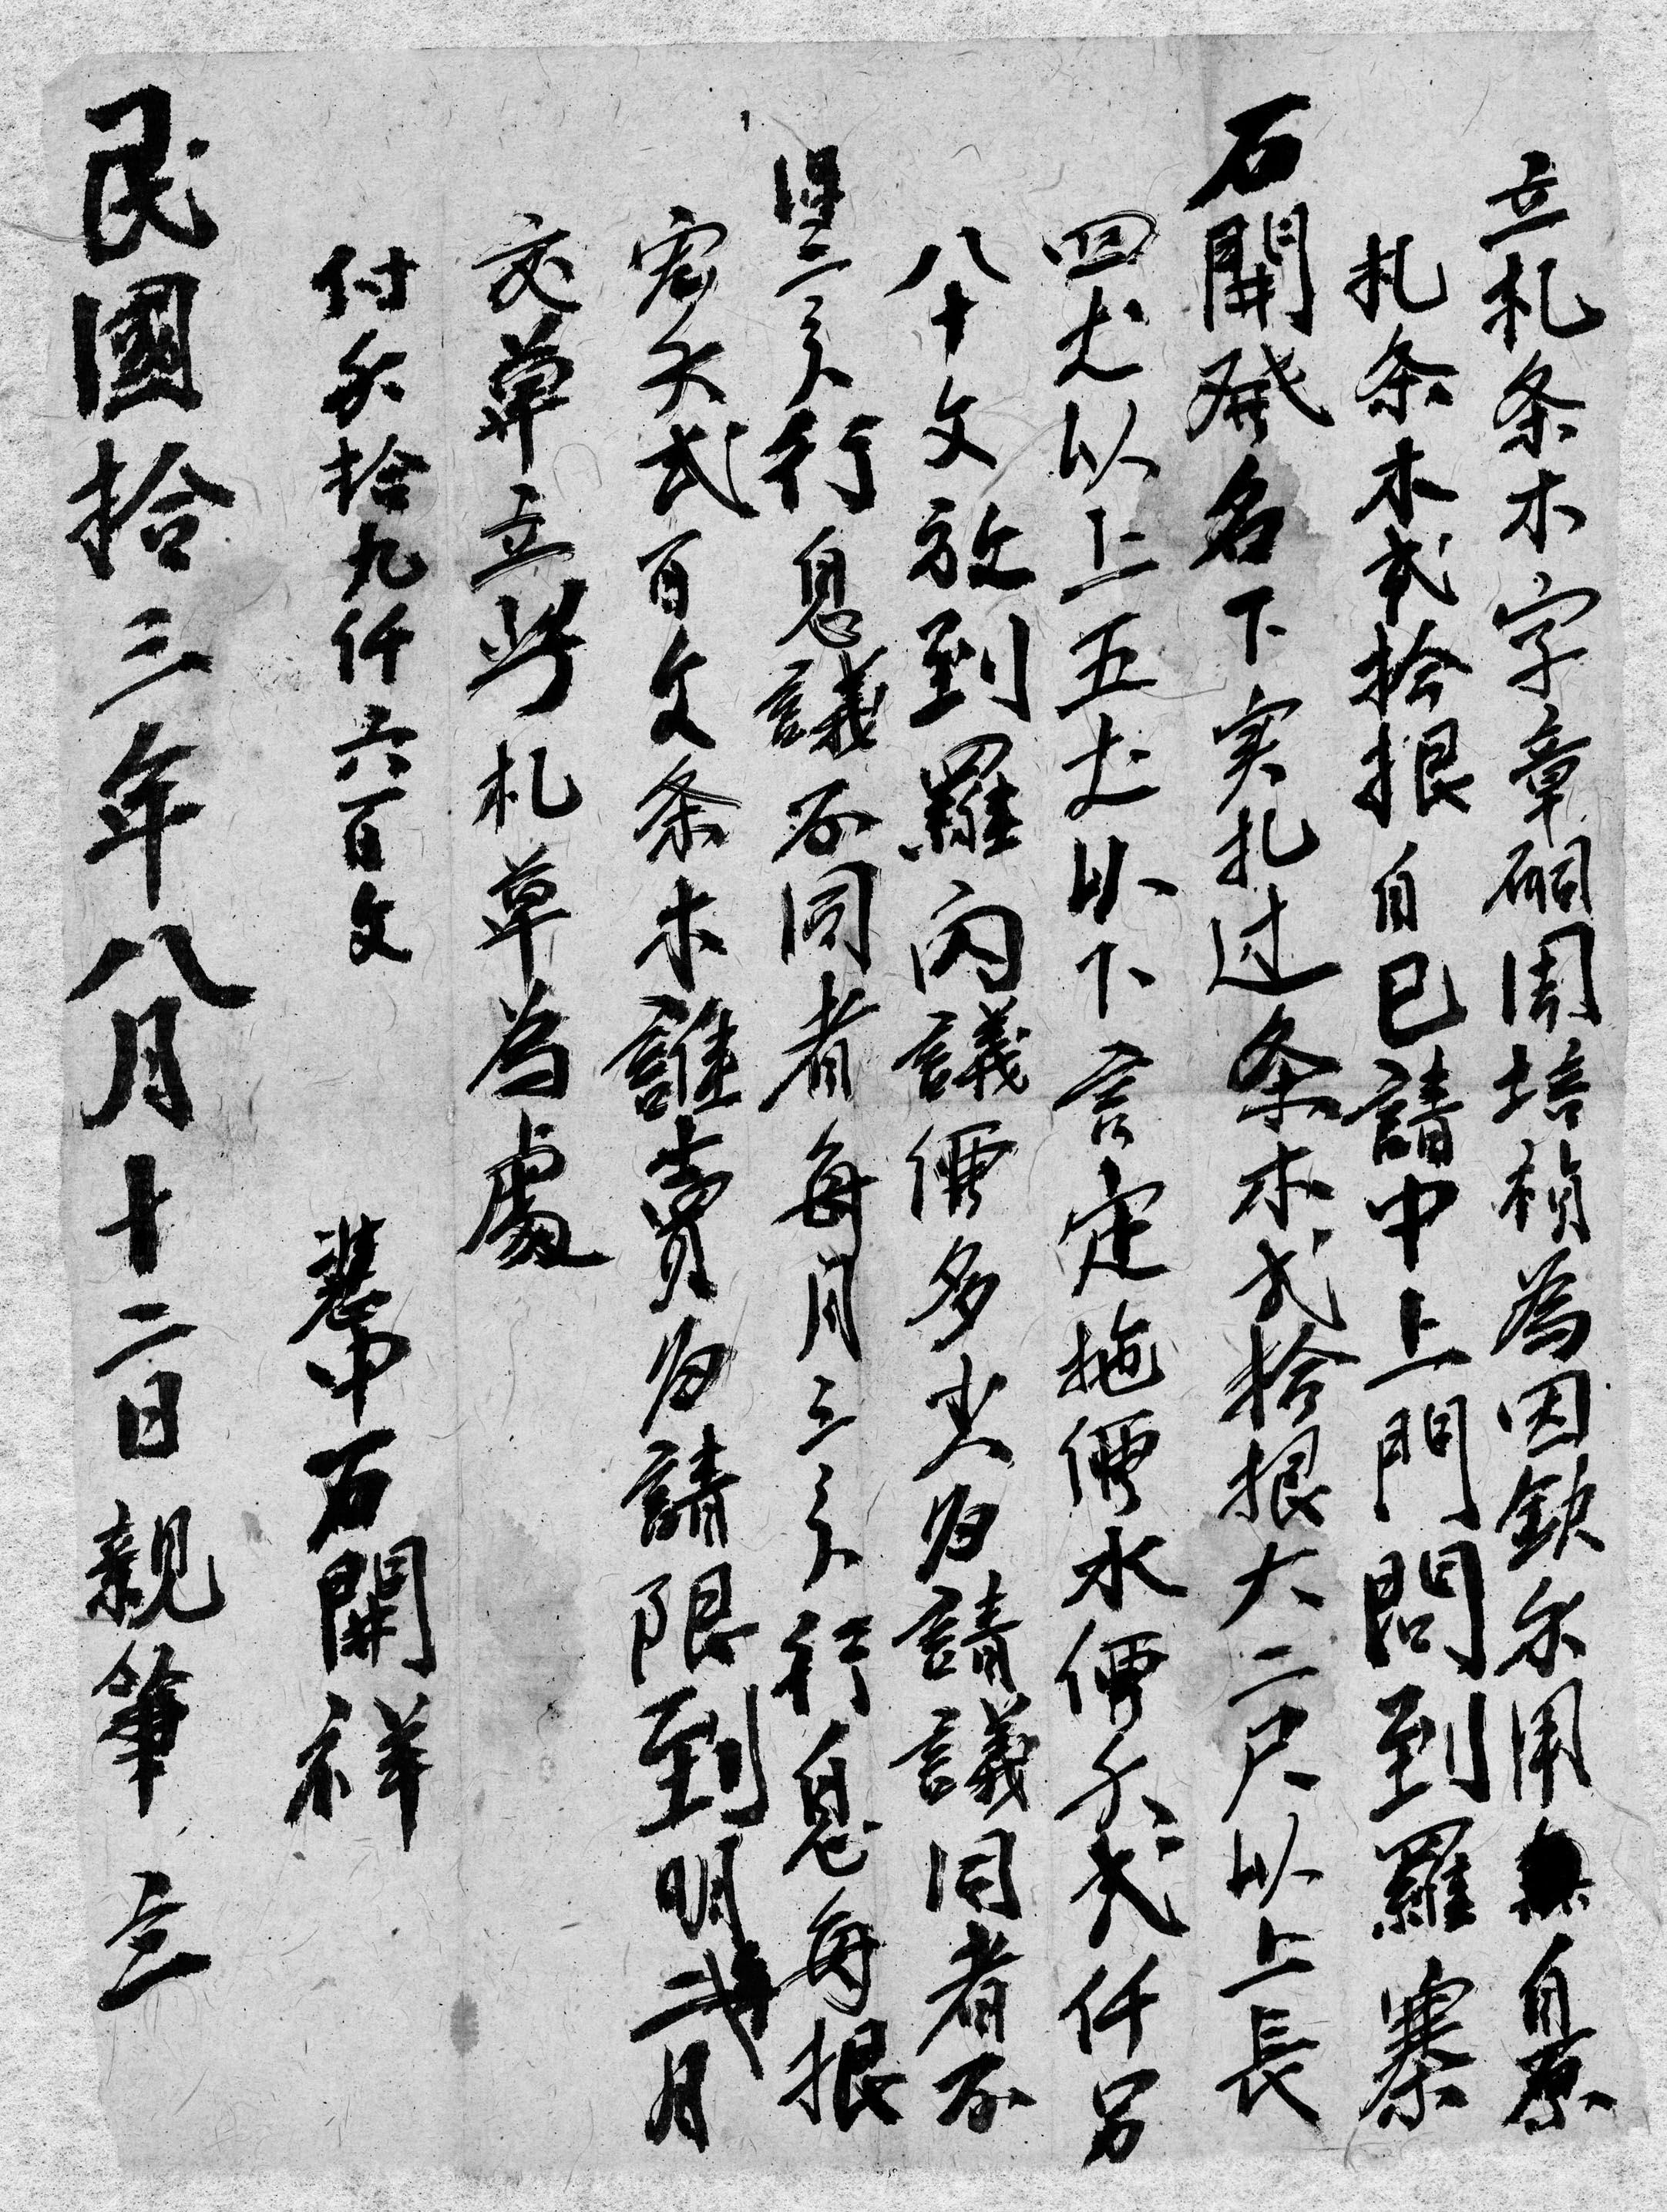 立札条木字章硐周培禎為因欽尔用無自原
札条木弐拾根自巳請中上門問到羅寨
石開發名下実扎过条木弐拾根大二尺以上長
四丈以上五丈以下言定拖價水價子弐仟另
八十文放到羅內議價多少歸請議同者不
三行息議不同者每月三行息每根
弐百文条木誰賣歸請限到明弐月
交草立此札草為處
付拾九仟六百文
憑中石開祥
民國拾三年八月十二日親筆立